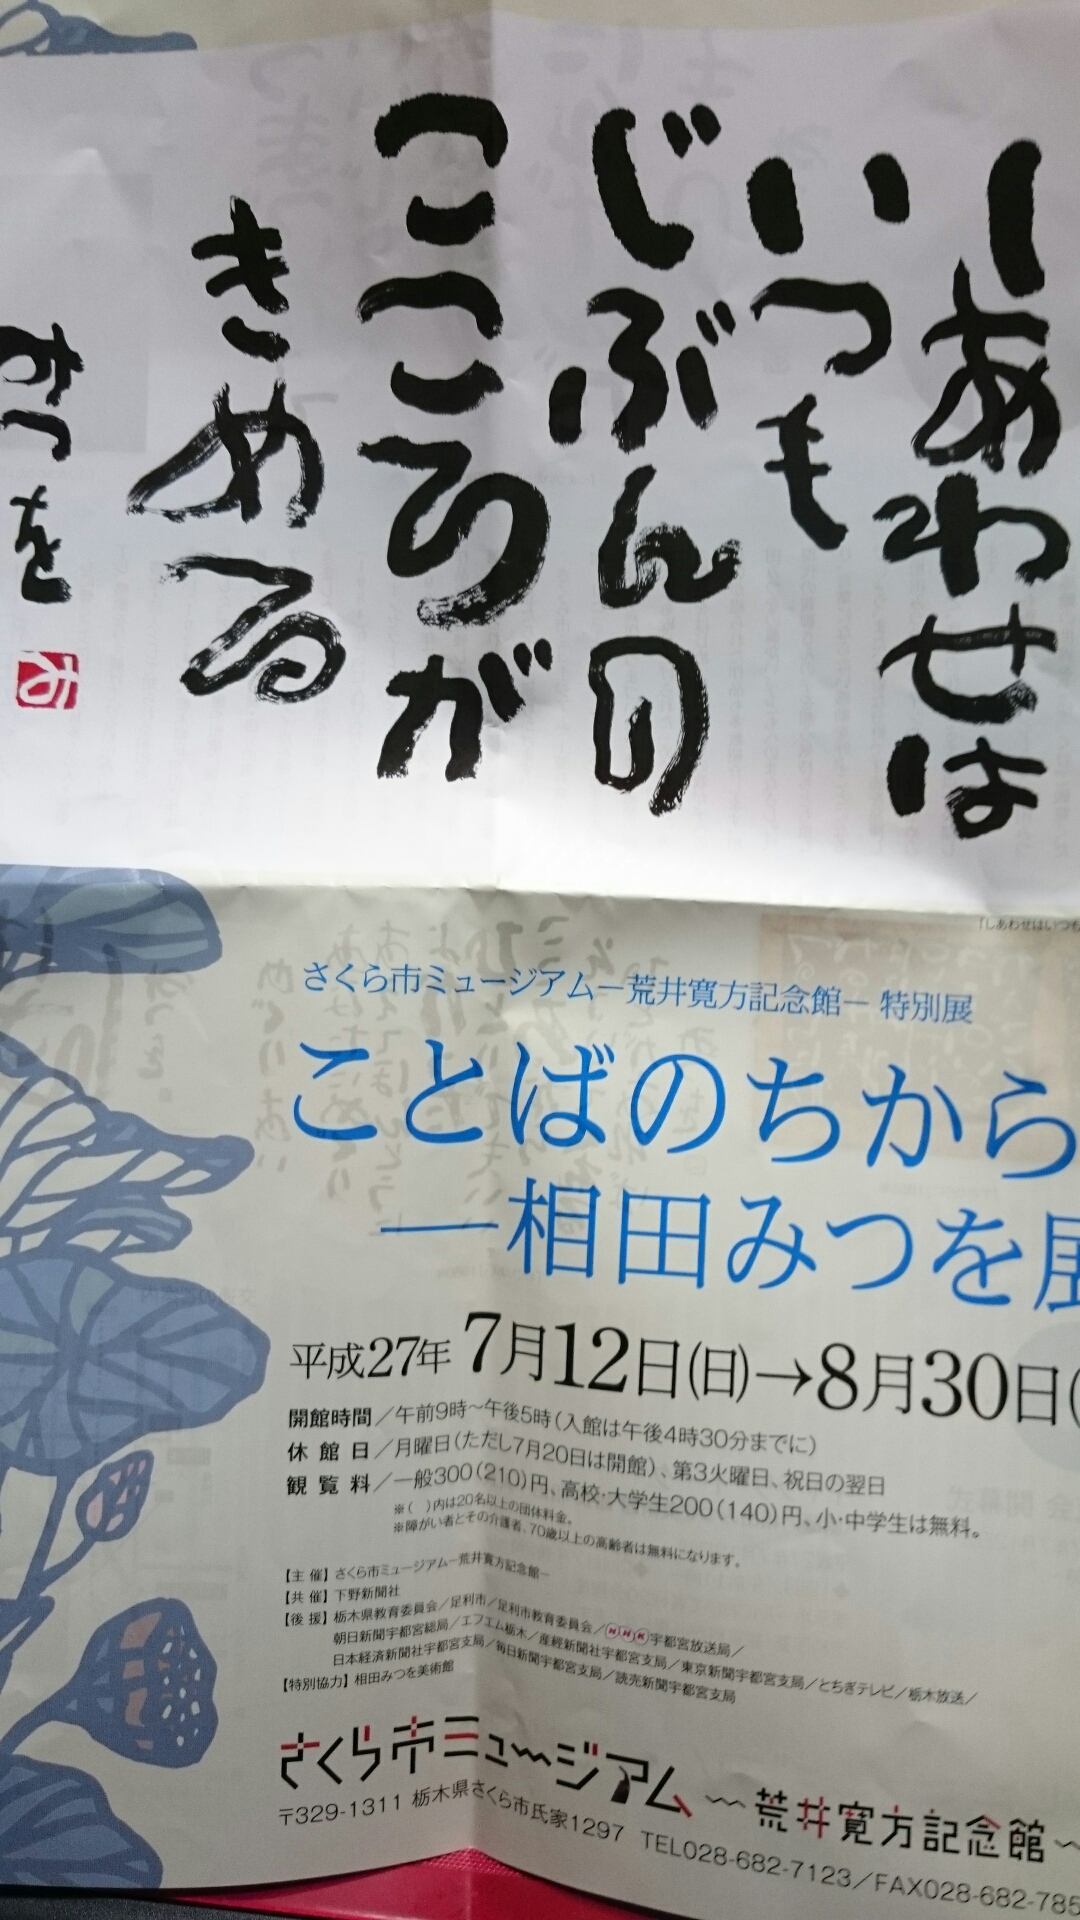 しあわせは
いつも
じぶんの
こころが
きめる
みつを
「しあわせはいつも
さくら市ミュージアム－荒井寛方記念館－ 特別展
ことばのちから
—相田みつを
平成27年 7月12日(日)→8月30日(
開館時間／午前9時～午後5時(入館は午後4時30分までに)
休館日／月曜日(ただし7月20日は開館)、第3火曜日、祝日の翌日
観覧料／一般300(210)円、高校・大学生200(140)円、小・中学生は無料。
※( )内は20名以上の団体料金。
※障がい者とその介護者、70歳以上の高齢者は無料になります。
【主催】さくら市ミュージアム－荒井寛方記念館－
【共催】下野新聞社
【後援】栃木県教育委員会／足利市／足利市教育委員会／NHK宇都宮放送局／
朝日新聞宇都宮総局／エフエム栃木／産経新聞社宇都宮支局／東京新聞宇都宮支局／とちぎテレビ／栃木放送／
日本経済新聞社宇都宮支局／毎日新聞宇都宮支局／読売新聞宇都宮支局
【特別協力】相田みつを美術館
さくら市ミュージアム～荒井寛方記念館～
〒329-1311 栃木県さくら市氏家1297 TEL028-682-7123／FAX028-682-785